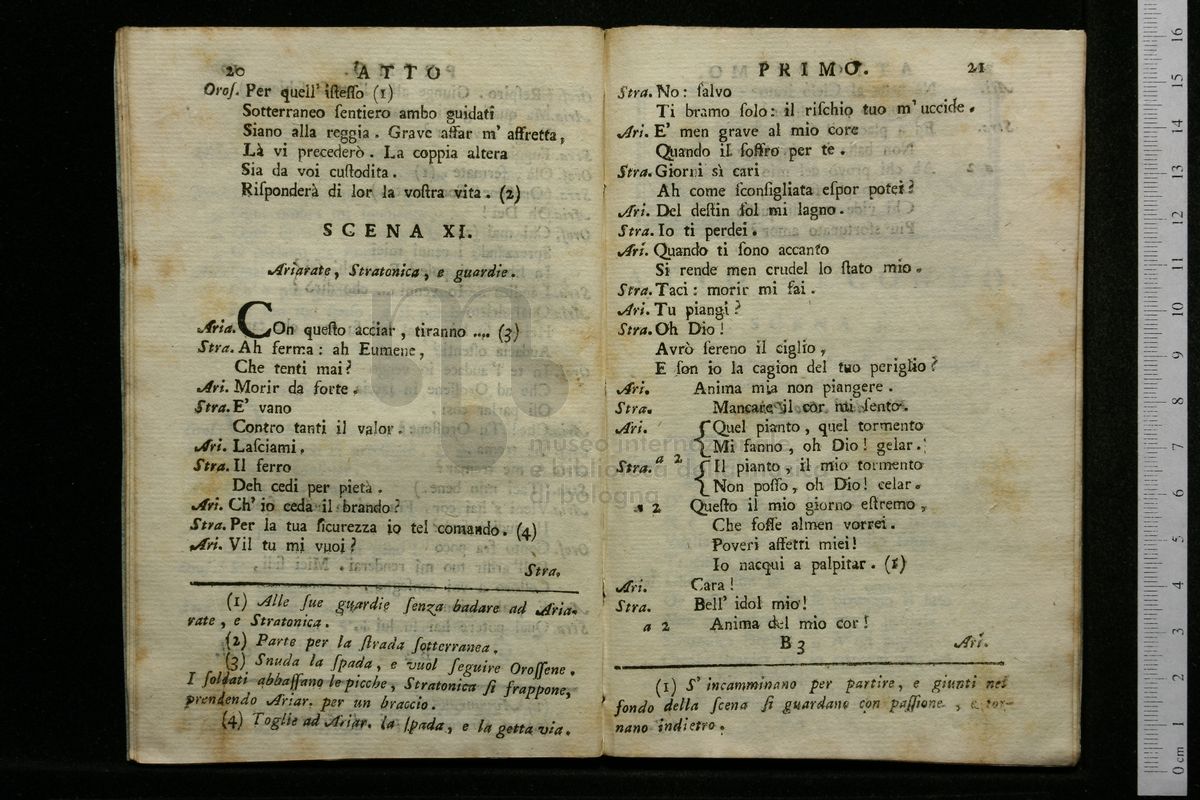 20 ATTO
Oroſ. Per quell' iſteſſo (1)
Sotterraneo ſentiero ambo guidati
Siano alla reggia. Grave affar m' affretta,
Là vi precederò. La coppia altera
Sia da voi cuſtodita.
Riſponderà di lor la voſtra vita. (2)
SCENA XI.
Ariarate, Stratonica, e guardie.
Aria. COn queſto acciar, tiranno .... (3)
Stra. Ah ferma: ah Eumene,
Che tenti mai?
Ari. Morir da forte.
Stra. E' vano
Contro tanti il valor.
Ari. Laſciami.
Stra. Il ferro
Deh cedi per pietà.
Ari. Ch' io ceda il brando?
Stra. Per la tua ſicurezza io tel comando. (4)
Ari. Vil tu mi vuoi?
Stra.
(1) Alle ſue guardie ſenza badare ad Aria-
rate, e Stratonica.
(2) Parte per la ſtrada ſotterranea.
(3) Snuda la ſpada, e vuol ſeguire Oroſſene.
I ſoldati abbaſſano le picche, Stratonica ſi frappone,
prendendo Ariar. per un braccio.
(4) Toglie ad Ariar. la ſpada, e la getta via.
PRIMO. 21
Stra. No: ſalvo
Ti bramo ſolo: il riſchio tuo m' uccide.
Ari. E' men grave al mio core
Quando il ſoffro per te.
Stra. Giorni sì cari
Ah come ſconſigliata eſpor potei?
Ari. Del deſtin ſol mi lagno.
Stra. Io ti perdei.
Ari. Quando ti ſono accanto
Si rende men crudel lo ſtato mio.
Stra. Taci: morir mi fai.
Ari. Tu piangi?
Stra. Oh Dio!
Avrò ſereno il ciglio,
E ſon io la cagion del tuo periglio?
Ari. Anima mia non piangere.
Stra. Mancare il cor mi ſento.
Ari. {Quel pianto, quel tormento
{Mi fanno, oh Dio! gelar.
a 2
Stra. {Il pianto, il mio tormento
{Non poſſo, oh Dio! celar.
a 2 Queſto il mio giorno eſtremo,
Che foſſe almen vorrei.
Poveri affetti miei!
Io nacqui a palpitar. (1)
Ari. Cara!
Stra. Bell' idol mio!
a 2 Anima del mio cor!
B 3 Ari.
(1) S' incamminano per partire, e giunti nel
fondo della ſcena ſi guardano con paſſione, e tor-
nano indietro.
museo internazionale
e biblioteca della musica
di bologna
0 cm 1 2 3 4 5 6 7 8 9 10 11 12 13 14 15 16